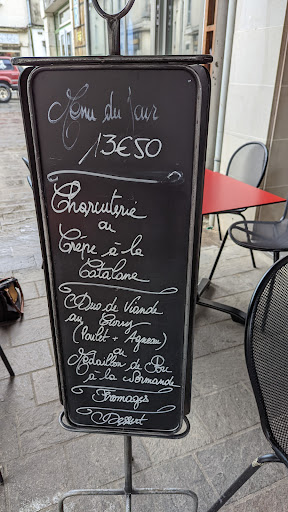 Menu du jour
13€50
Charcuterie
ou
Crêpe à la
Catalane
Duo de Viande
au Curry
(Poulet + Agneau)
ou
Médaillon de
à la Normande
Fromages
Dessert